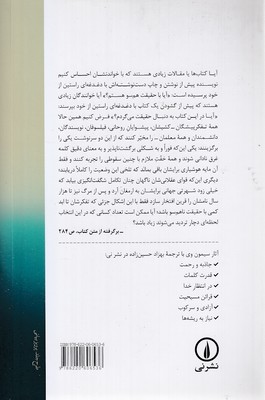 آیا کتاب‌ها یا مقالات زیادی هستند که با خواندنشان احساس کنیم
نویسنده پیش از نوشتن و چاپ دست‌نوشته‌اش با دغدغه‌ای راستین از
خود پرسیده است، «آیا با حقیقت همسو هستم؟» آیا خوانندگان زیادی
هستند که پیش از گشودن یک کتاب با دغدغه‌ای راستین از خود بپرسند:
«آیا در این کتاب به دنبال حقیقت می‌گردم؟» فرض کنیم همین حالا
همهٔ تفکرپیشگان ـ کشیشان، پیشوایان روحانی، فیلسوفان، نویسندگان،
دانشمندان و همهٔ معلمان ـ را مختر کنند از این دو سرنوشت یکی را
برگزینند: یکی این‌که فوراً و به شکلی برگشت‌ناپذیر و به معنای دقیق کلمه
غرق نادانی شوند و همهٔ خفّت ملازم با چنین سقوطی را تجربه کنند و فقط
آن مایه هوشیاری برایشان باقی بماند که تلخی این وضعیت را کاملاً دریابند؛
دیگری این‌که قوای عقلانی‌شان ناگهان چنان تکامل شگفت‌انگیزی بیابد که
خیلی زود شهرتی جهانی برایشان به ارمغان آرد و پس از مرگ نیز تا هزار
سال نامشان را قرین افتخار سازد فقط با این اشکال جزئی که تفکرشان تا ابد
کمی با حقیقت ناهمسو باشد؛ آیا ممکن است تعداد کسانی که در این انتخاب
لحظه‌ای دچار تردید می‌شوند زیاد باشد؟
ـ برگرفته از متن کتاب، ص ۲۸۴
آثار سیمون وی با ترجمهٔ بهزاد حسین‌زاده در نشر نی:
ـ جاذبه و رحمت
ـ قدرت کلمات
ـ در انتظار خدا
ـ قرائن مسیحیت
ـ آزادی و سرکوب
ـ نیاز به ریشه‌ها
نشرنی